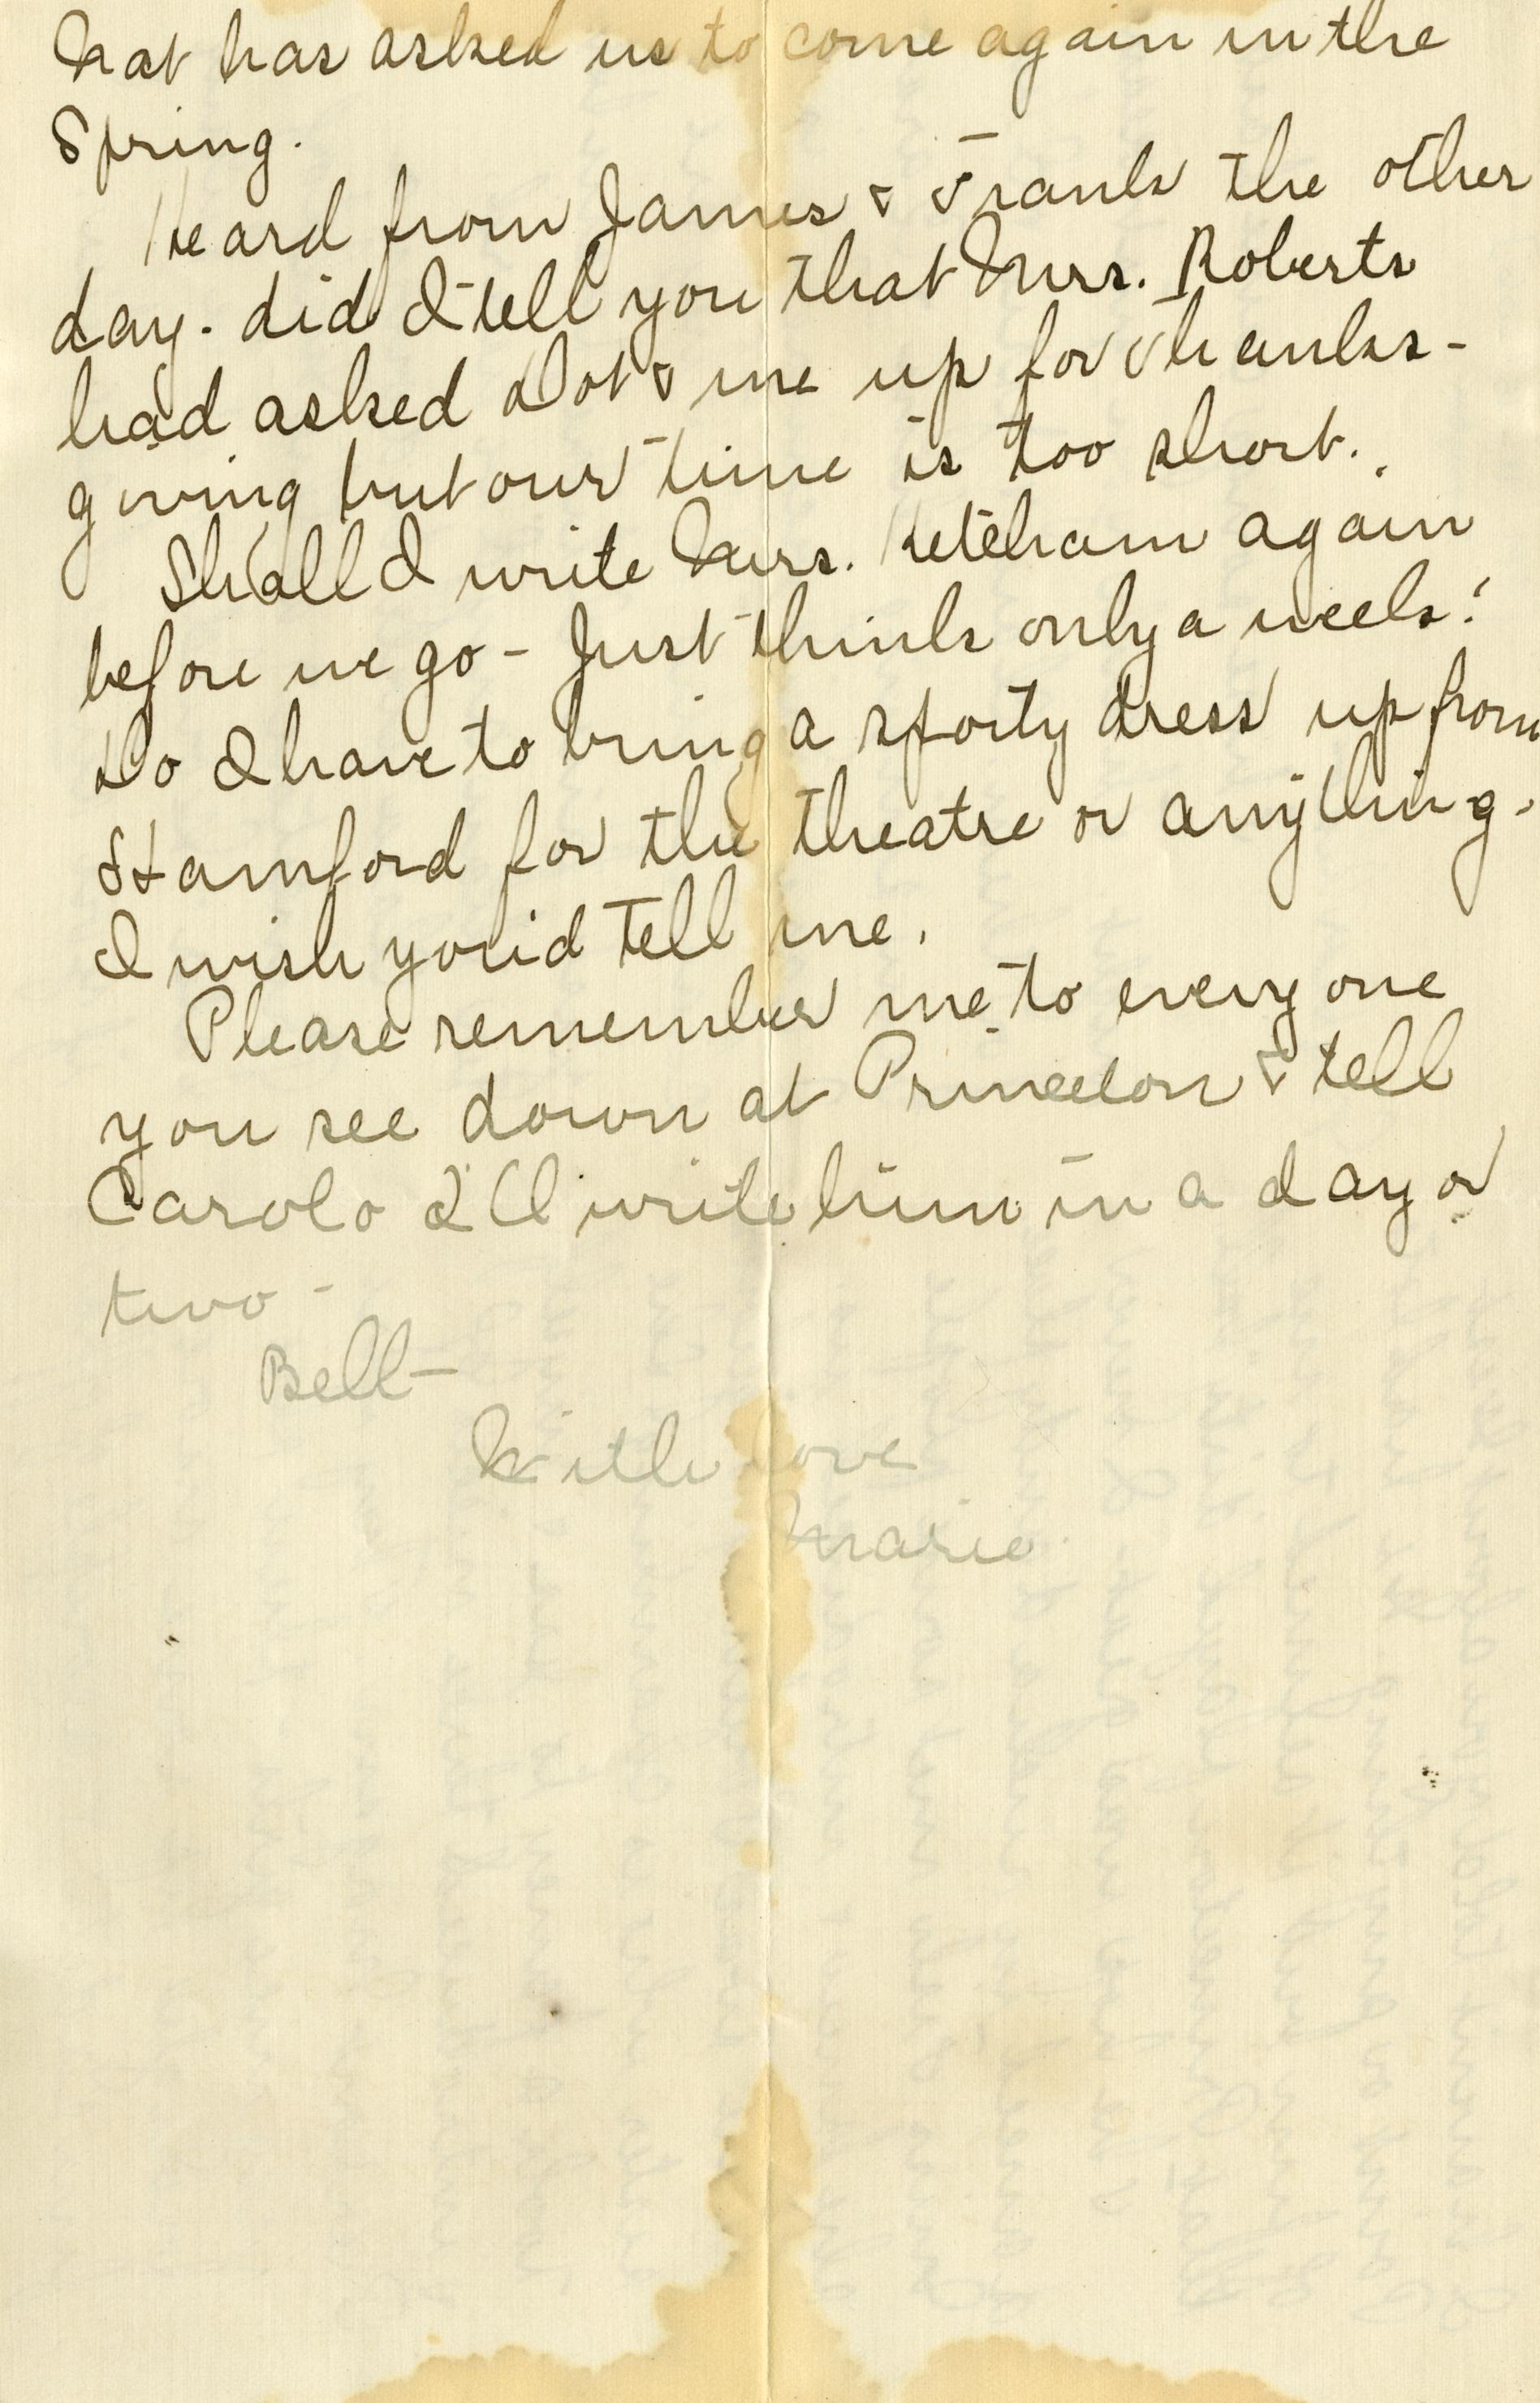 Nat has asked us to come again in the
Spring.
Heard from James & Frank the other
day. did I tell you that Mrs. Roberts
had asked Dot & me up for Thanks-
giving but our time is too short.
Shall I write Mrs. Ketcham again
before we go - Just think only a week!
Do I have to bring a sporty dress up from
Stamford for the theatre or anything.
I wish you'd tell me.
Please remember me to everyone
you see down at Princeton & tell
Carolo I'll write him in a day or
two -
Bell -
With love
Marie